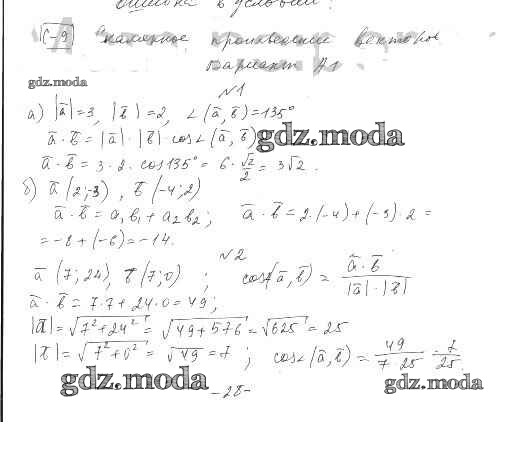 ошибка в условии.
С-9 Скалярное произведение векторов
Вариант А1
gdz.moda
№1
а) |a̅|=3, |b̅|=2, ∠(a̅, b̅)=135°
a̅·b̅=|a̅|·|b̅|·cos∠(a̅, b̅) gdz.moda
a̅·b̅=3·2·cos135°=6·√2/2=3√2.
б) a̅(2;-3), b̅(-4;2)
a̅·b̅=a₁b₁+a₂b₂; a̅·b̅=2·(-4)+(-3)·2=
=-8+(-6)=-14.
№2
a̅(7;24), b̅(7;0); cos∠(a̅,b̅)=a̅·b̅/|a̅|·|b̅|
a̅·b̅=7·7+24·0=49;
|a̅|=√7²+24²=√49+576=√625=25
|b̅|=√7²+0²=√49=7; cos∠(a̅,b̅)=49/7·25=7/25.
gdz.moda gdz.moda
-28-